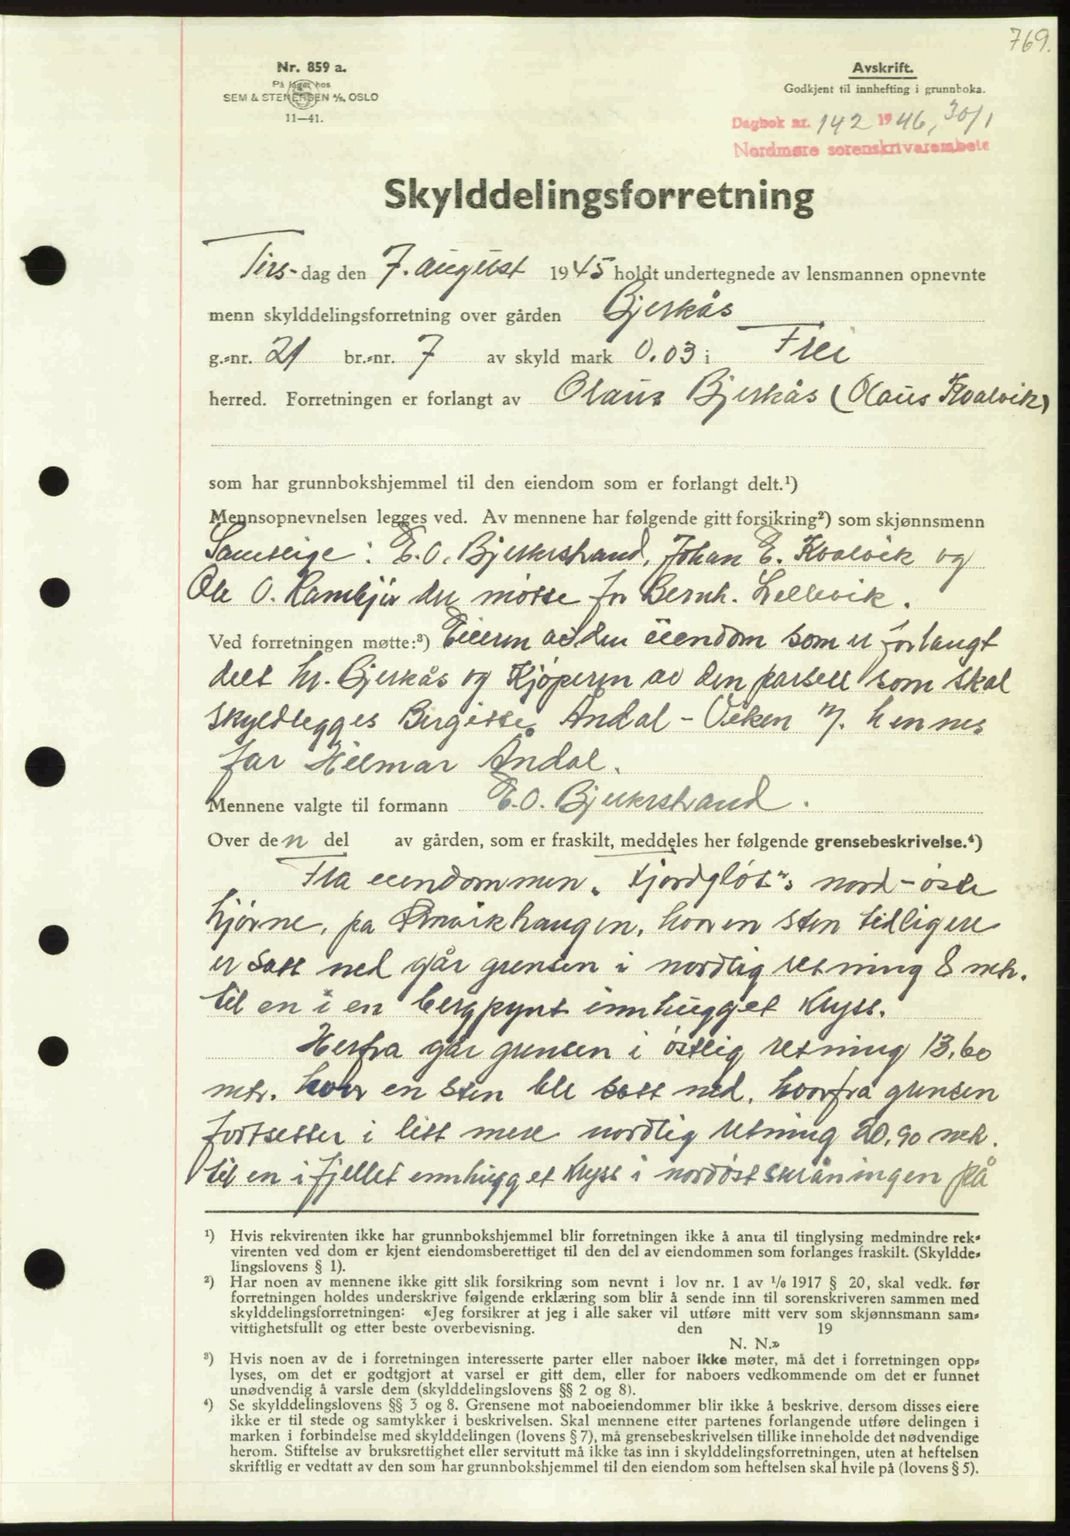 769.
Nr. 859 a.
På lager hos
SEM & STENERSEN A/S, OSLO
11—41.
Avskrift.
Godkjent til innhefting i grunnboka.
Dagbok nr. 142 1946, 30/1
Nordmøre sorenskrivarembete
Skylddelingsforretning
Tirs-dag den 7. august 1945 holdt undertegnede av lensmannen opnevnte
menn skylddelingsforretning over gården Bjerkås
g.-nr. 21 br.-nr. 7 av skyld mark 0.03 i Frei
herred. Forretningen er forlangt av Olaus Bjerkås (Olaus Kvalvik)
som har grunnbokshjemmel til den eiendom som er forlangt delt.¹)
Mennsopnevnelsen legges ved. Av mennene har følgende gitt forsikring²) som skjønnsmenn
Samtlige: E. O. Bjerkestrand, Johan E. Kvalvik og
Ole O. Rambjør der møtte for Bernh. Lellevik.
Ved forretningen møtte:³) Eieren av den eiendom som er forlangt
delt hr. Bjerkås og Kjøperen av den parsell som skal
skyldlegges Birgitte Åndal - Viken v/. hennes
far Hilmar Åndal.
Mennene valgte til formann E. O. Bjerkestrand.
Over den del av gården, som er fraskilt, meddeles her følgende grensebeskrivelse.⁴)
Fra eiendommen „Fjordgløt"s nord-østre
hjørne, på haugen, hvor en sten tidligere
er satt ned går grensen i nordlig retning 8 mtr.
til en i en bergpynt innhugget kryss.
Herfra går grensen i østlig retning 13,60
mtr. hvor en sten ble satt ned, hvorfra grensen
fortsetter i litt mere nordlig retning 20,90 mtr.
til en i fjellet innhugget kryss i nordøstskråningen på
¹) Hvis rekvirenten ikke har grunnbokshjemmel blir forretningen ikke å anta til tinglysing medmindre rek-
virenten ved dom er kjent eiendomsberettiget til den del av eiendommen som forlanges fraskilt. (Skyldde-
lingslovens § 1).
²) Har noen av mennene ikke gitt slik forsikring som nevnt i lov nr. 1 av ¹/₈ 1917 § 20, skal vedk. før
forretningen holdes underskrive følgende erklæring som blir å sende inn til sorenskriveren sammen med
skylddelingsforretningen: «Jeg forsikrer at jeg i alle saker vil utføre mitt verv som skjønnsmann sam-
vittighetsfullt og etter beste overbevisning. den 19
N. N.»
³) Hvis noen av de i forretningen interesserte parter eller naboer ikke møter, må det i forretningen opp-
lyses, om det er godtgjort at varsel er gitt dem, eller for naboers vedkommende om det er funnet
unødvendig å varsle dem (skylddelingslovens §§ 2 og 8).
⁴) Se skylddelingslovens §§ 3 og 8. Grensene mot naboeiendommer blir ikke å beskrive, dersom disses eiere
ikke er til stede og samtykker i beskrivelsen. Skal mennene etter partenes forlangende utføre delingen i
marken i forbindelse med skylddelingen (lovens § 7), må grensebeskrivelsen tillike inneholde det nødvendige
herom. Stiftelse av bruksrettighet eller servitutt må ikke tas inn i skylddelingsforretningen, uten at heftelsen
skriftlig er vedtatt av den som har grunnbokshjemmel til den eiendom som heftelsen skal hvile på (lovens § 5).